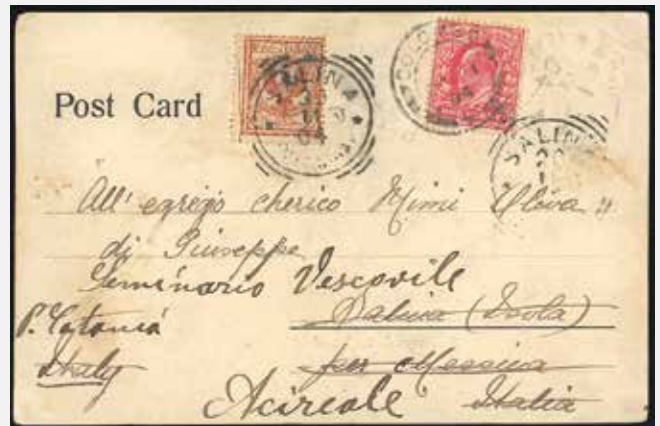 Post Card
SALINA
SALINA
All' egregio cherico Mimi Oliva
di Giuseppe
Seminario Vescovile
Salina (Isola)
P. Catania
per Messina
Italy
Acireale Italia